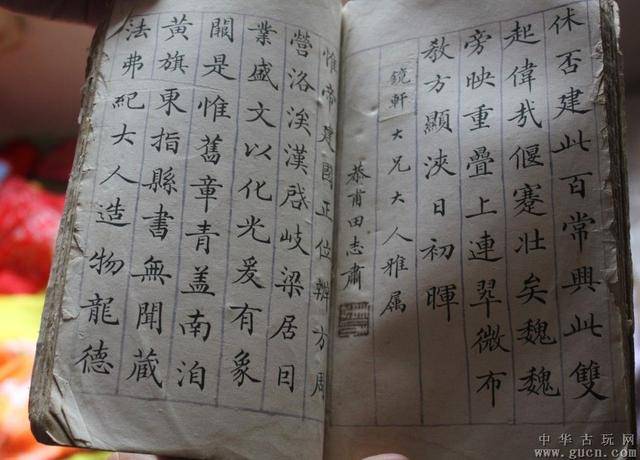 休否建此百常興此雙
起偉哉偃蹇壯矣魏魏
旁映重疊上連翠微布
敎方顯浹日初暉
鏡軒大兄大人雅属
恭甫田志肅
惟帝建國正位辨方周
營洛涘漢啓岐梁居因
業盛文以化光爰有象
闕是惟舊章青盖南洎
黄旗東指縣書無聞藏
法弗紀大人造物龍德
中华古玩网
www.gucn.com